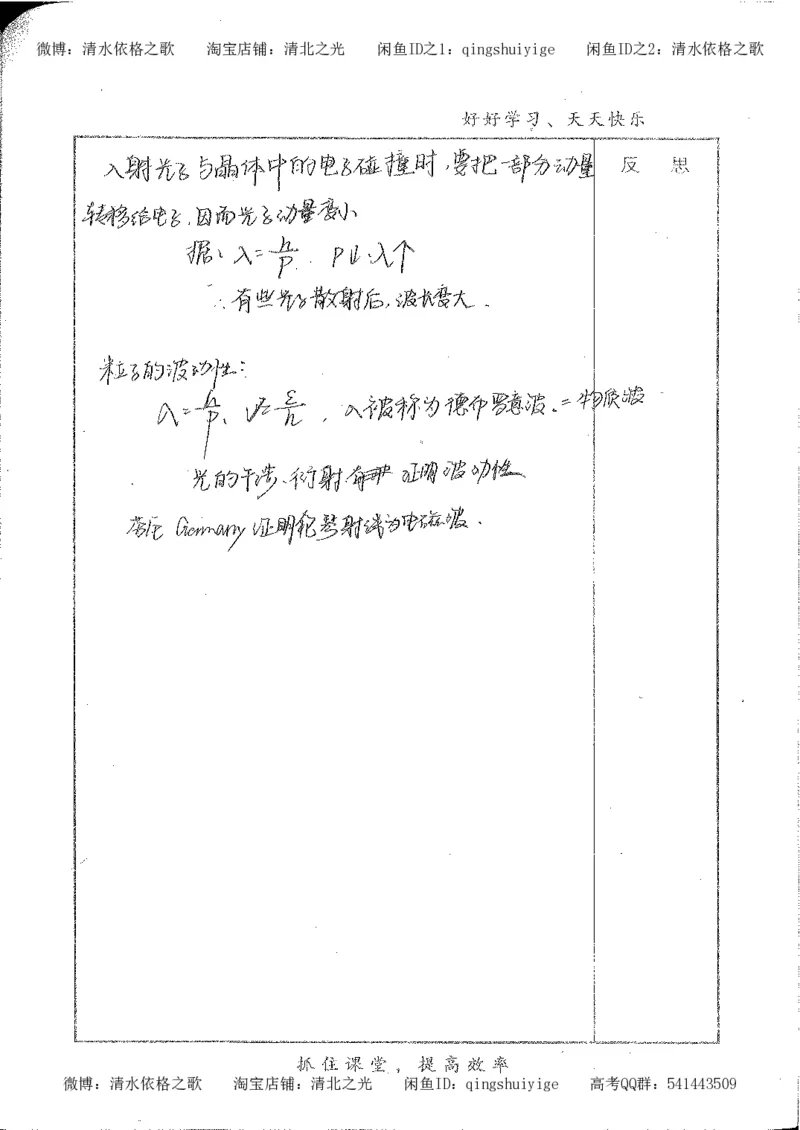 微博：清水依格之歌 淘宝店铺：清北之光 闲鱼ID之1：qingshuiyige 闲鱼ID之2：清水依格之歌
好好学习、天天快乐
反 思
入射光子与晶体中的电子碰撞时，要把一部分动量
转移给电子，因而光子动量变小
据：λ=h/P. P↓.λ↑
∴有些光子散射后，波长变大.
粒子的波动性：
λ=h/P、ν=ε/h，λ被称为德布罗意波.=物质波
光的干涉、衍射 证明波动性
劳厄 Germany 证明伦琴射线为电磁波.
抓住课堂，提高效率
微博：清水依格之歌 淘宝店铺：清北之光 闲鱼ID：qingshuiyige 高考QQ群：541443509